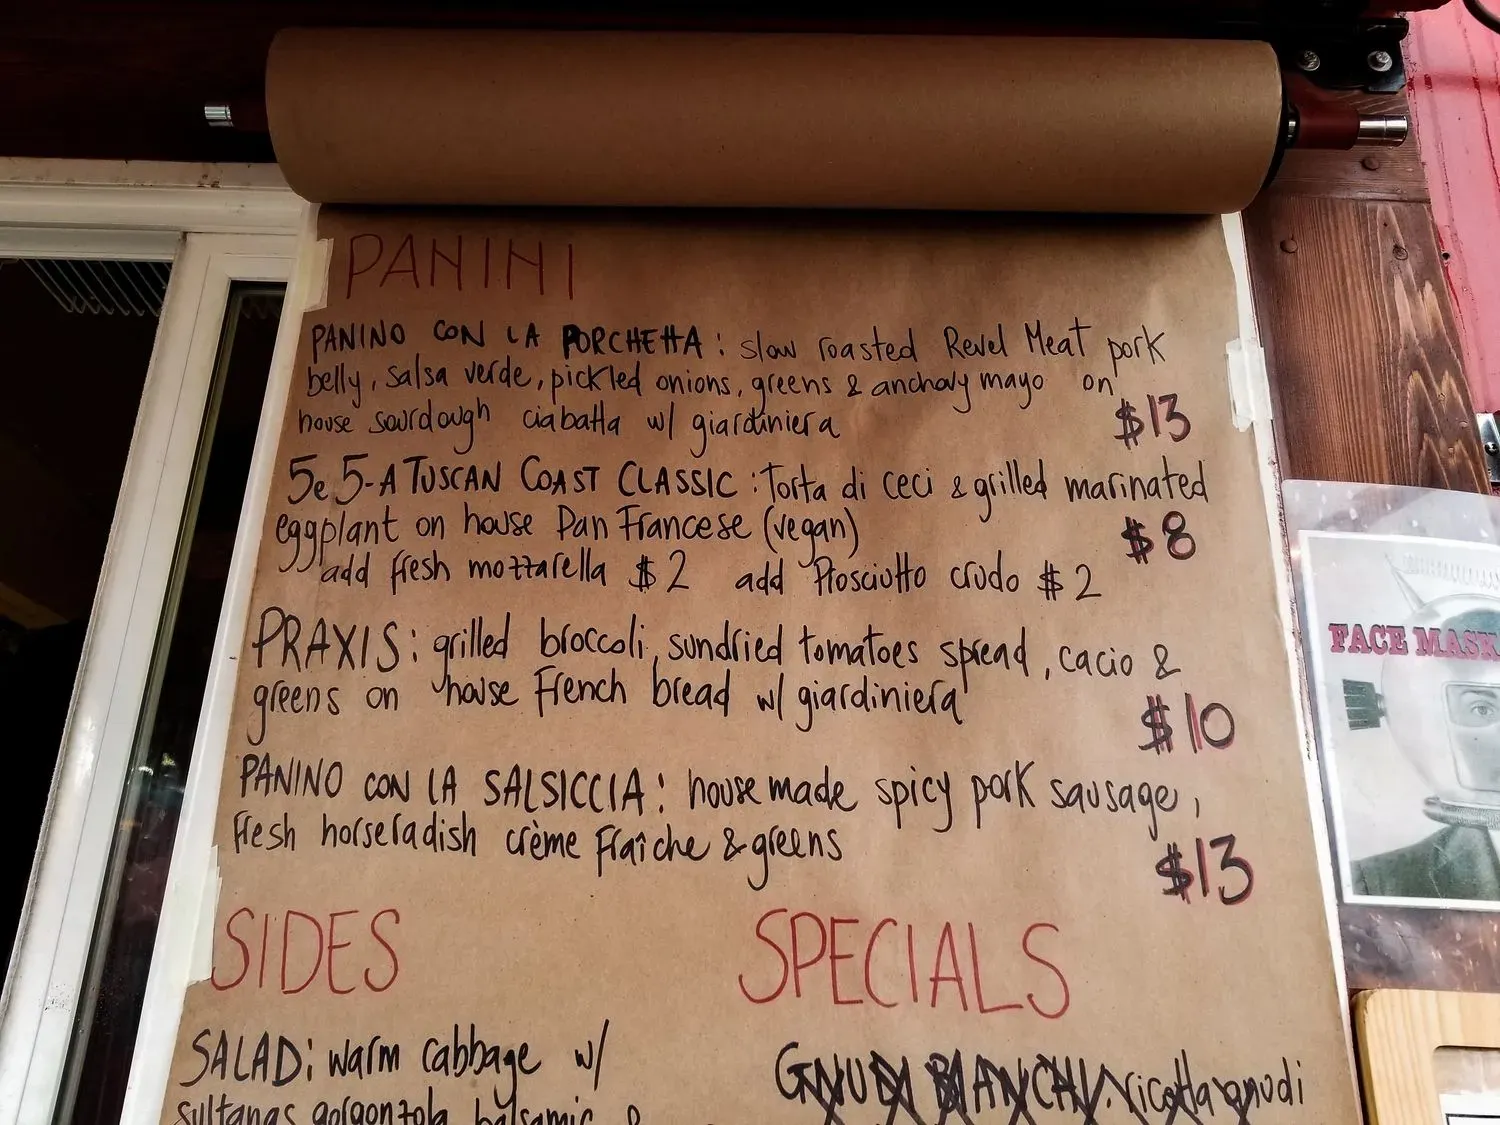 PANINI
PANINO CON LA PORCHETTA: slow roasted Revel Meat pork
belly, salsa verde, pickled onions, greens & anchovy mayo on
house sourdough ciabatta w/ giardiniera
$13
5e5-A TUSCAN COAST CLASSIC: Torta di ceci & grilled marinated
eggplant on house Pan Francese (vegan)
$8
add fresh mozzarella $2 add Prosciutto crudo $2
PRAXIS: grilled broccoli, sundried tomatoes spread, cacio &
greens on house French bread w/ giardiniera
$10
PANINO CON LA SALSICCIA: house made spicy pork sausage,
fresh horseradish crème fraîche & greens
$13
SIDES
SALAD: warm cabbage w/
sultanas gorgonzola balsamic &
SPECIALS
GNUDI BIANCHI: ricotta gnudi
FACE MASK